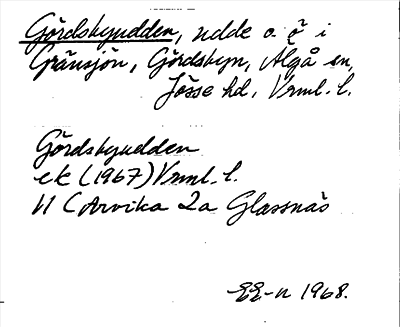 Gördsbyudden, udde o. ö i
Gränsjön, Gördsbyn, Älgå sn,
Jösse hd, Vrml. l.
Gördsbyudden
ek (1967) Vrml. l.
11 C Arvika 2a Glassnäs
1968.